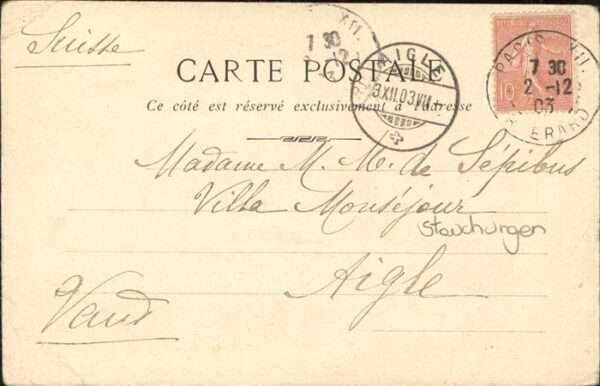 Suisse
XII.
7 30
-12
PARIS XII.
7 30
2 -12
03
ERARD
10
AIGLE
3.XII.03.VII.
CARTE POSTALE
Ce côté est réservé exclusivement à l'adresse
Madame M. M. de Sépibus
Villa Monséjour
Stauchungen
Aigle
Vaud